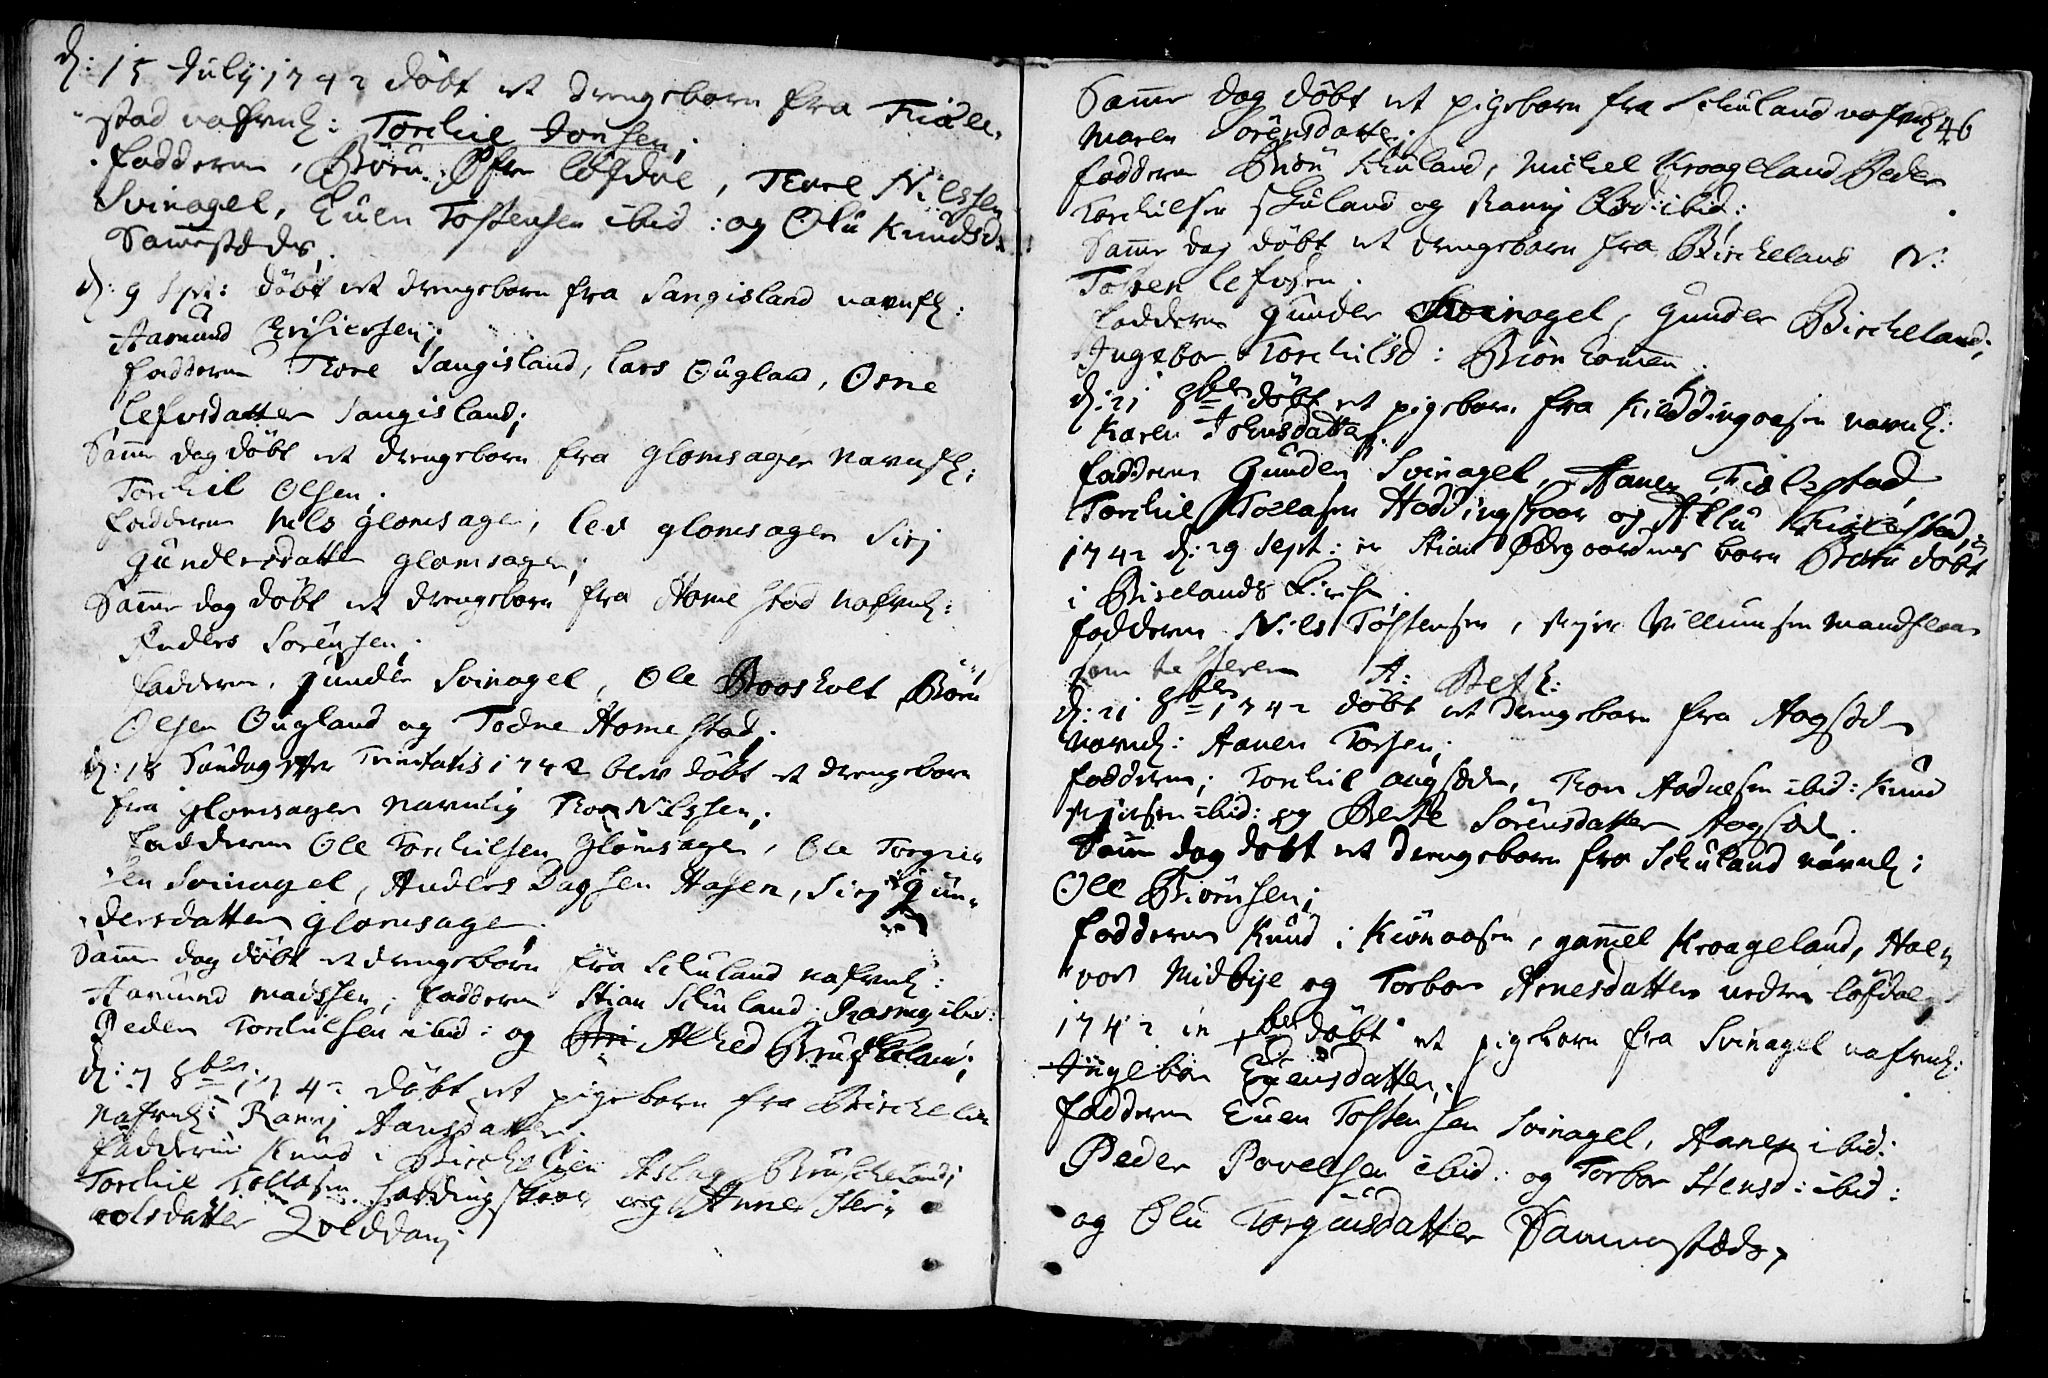 d: 15 July 1742 döbt et drengebarn fra Tiöll„
„stad nafnlℓ: Torchil Jonsen;
Fadderne, Börn Öfre löfdal, Tore Nilssen
Svinagel, Euen Tostensen ibid: og Olu Knudsd.
Sammestedes;
d: 9 Sept: döbt et drengebarn fra Sangisland navnlℓ:
Aamund
Fadderne Tore Sangisland, Lars Ougland, Osne
Lefvsdatter Sangisland;
Samme dag döbt et drengebarn fra Glomsager navnlℓ:
Torchil Olsen;
Fadderne Nils Glomsager, Lev Glomsager Sirj
Gundersdatter Glomsager;
Samme dag döbt et drengebarn fra Homestad nafnlℓ:
Anders Sörensen;
Fadderne, Gunder Svinagel, Ole Broosholt Börn
Olsen Ougland og Todne Homestad;
d: 18 Söndag efter Trinitatis 1742 blev döbt et drengebarn
fra Glomsager navnlig Thor Nilssen;
Fadderne Ole Torchilsen Glomsager, Ole Torgier
sen Svinagel, Anders Dagsen Hasen, Sirj Gun„
„dersdatter Glomsager;
Samme dag döbt et drengebarn fra Schuland nafnlℓ:
Aamund Madssen; Fadderne Stian Schuland, Rasmg ibid:
Peder Torchilsen ibid: og Alhed Brufleland;
d: 7 8br: 1742 döbt et pigebarn fra Bischelien
nafnlℓ: Ranvj Aansdatter;
Fadderne Knud i Bischelien Aslag Bruscheland;
Torchil Tollefsen Haddingskaar og Anne
olsdatter
Samme dag döbt et pigebarn fra Schuland nafnlℓ: 46
Maren Sörensdatter;
Fadderne Börn Schuland, Michel Kroageland Peder
Torchilsen Schuland og Ranvj ibid:
Samme dag döbt et drengebarn fra Bircheland N:
Tosten Lefvsen;
Fadderne Gunder Svinagel, Gunder Bircheland;
Ingebor Torchilsd: Biönkomen.
d: 21 8br döbt et pigebarn fra Kilddingaasen navnlℓ:
Karen Johnsdatter;
Fadderne Gunder Svinagel, Aanen Tiölestad
Torchil Tollefsen Haddingskaar og Allu Tiölestad;
1742 d: 29 Sept: er Stian Ödegaardnes barn Börn döbt
i Birelands Kirche.
Fadderne Nils Tostensen, Willumsen Mandflaae
som testerer A: Beck:
d: 21 8br 1742 döbt et drengebarn fra Aagsæde
navnlℓ: Aanen Torsen;
Fadderne; Torchil Augsæde, Tore Aadnesen ibid: Knud
ibid: og Berte Sörensdatter Aagsæde.
Samme dag döbt et drengebarn fra Schuland navnlℓ:
Ole Biörnsen;
Fadderne Knud i Kiönaasen, gamel Kroageland, Hal„
„vor Midbye og Torbor Arnesdatter nedre löfdal;
1742 in 9br döbt et pigebarn fra Svinagel nafnlℓ:
Ingebor Euensdatter;
Fadderne Euen Tostensen Svinagel, Aanen ibid:
Peder Povelsen ibid: og Torbor Hensd: ibid:
og Olu Torgiusdatter Sammestæds;